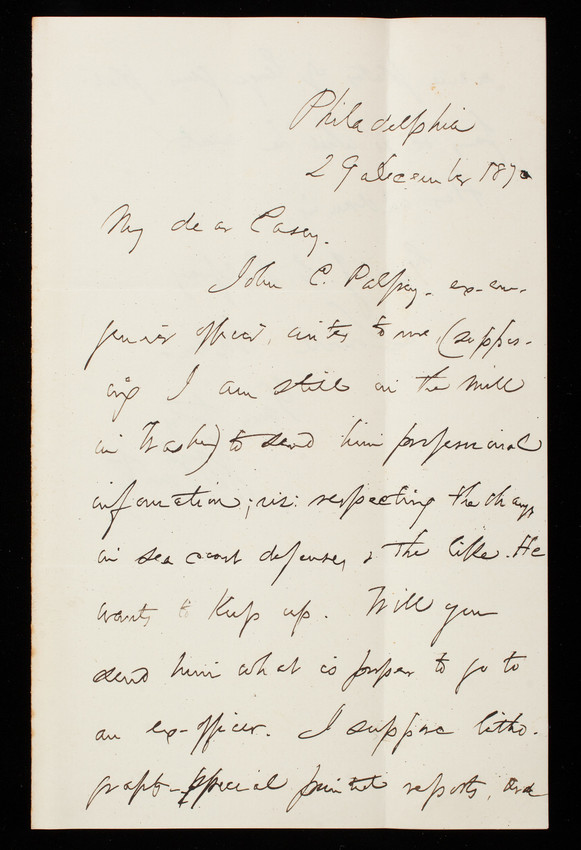 Philadelphia
29 December 1870
My dear Casey.
John C. Palfrey - ex-en-
gineer officer, writes to me, (suppos-
ing I am still in the mill
in Wash) to send him professional
information; viz: respecting the changes
in sea coast defenses, & the like. He
wants to Keep up. Will you
send him what is proper to go to
an ex-officer. I suppose litho-
graphs - special printed reports, and